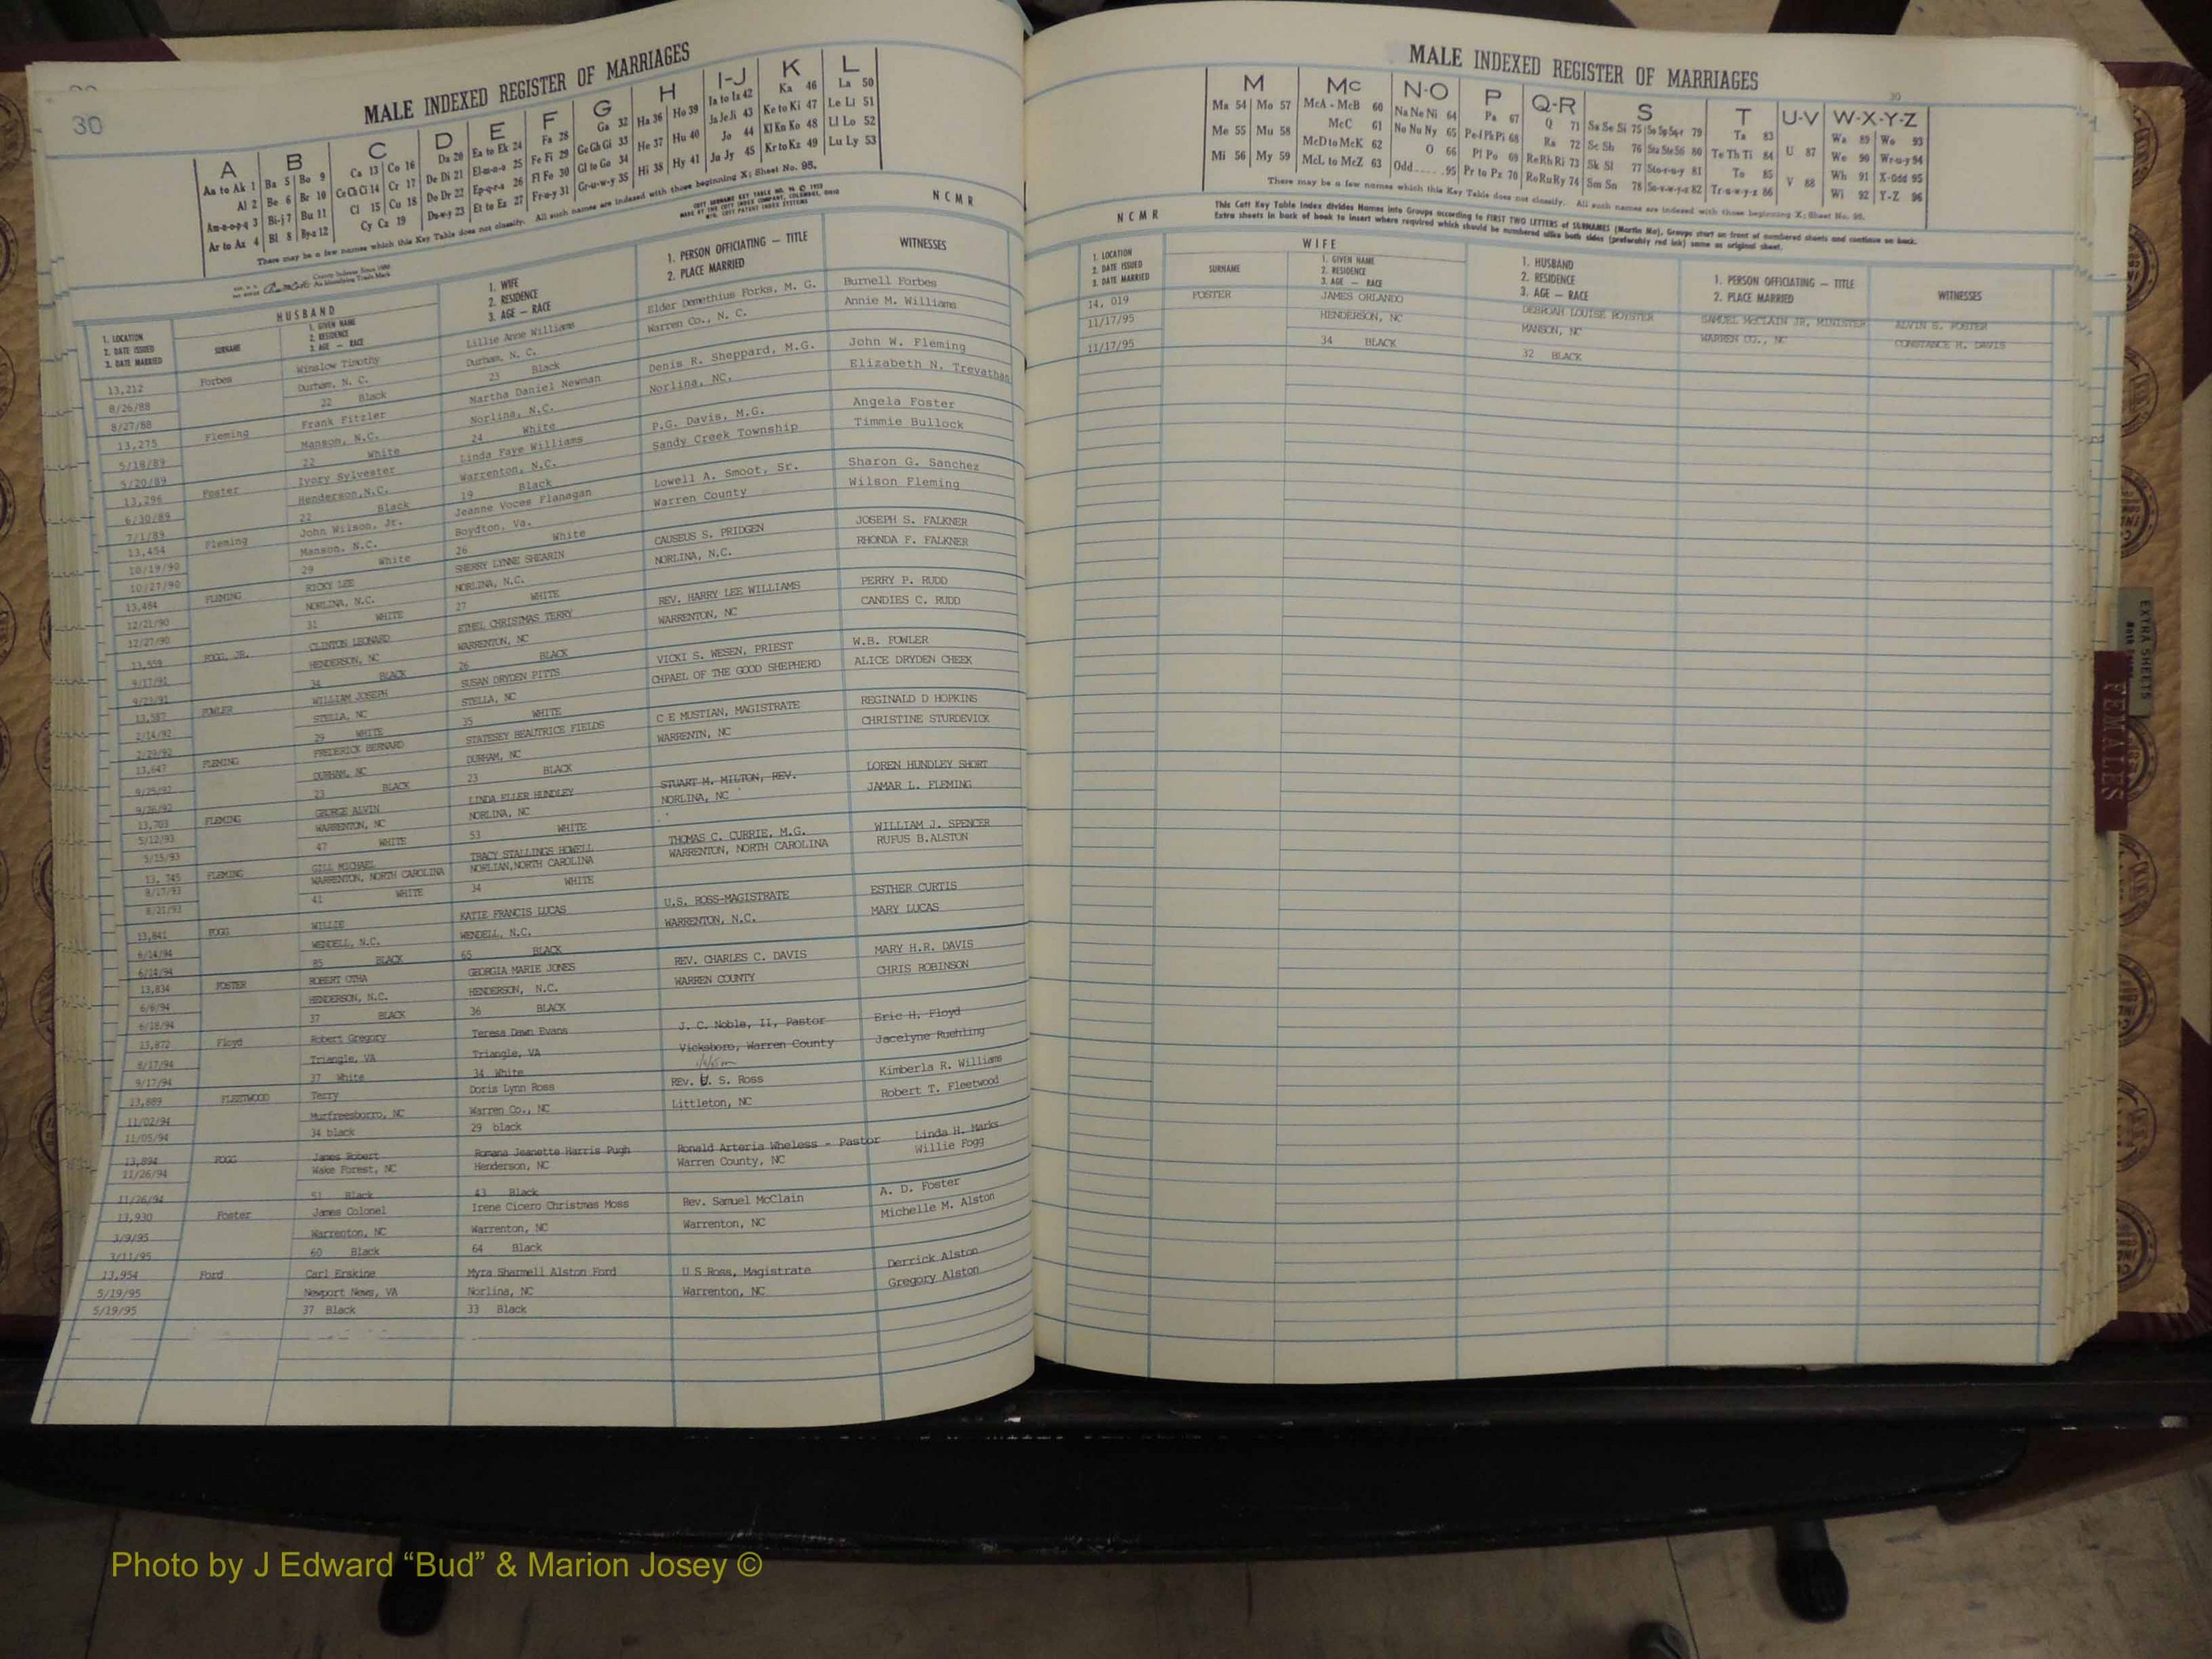 30
MALE INDEXED REGISTER OF MARRIAGES
A B C D E F G H I-J K L
Aa to Ak 1 Ba 5 Bo 9 Ca 13 Co 16 Da 20 Ea to Ek 24 Fa 28 Ga 32 Ha 36 Ho 39 Ia to Iz 42 Ka 46 La 50
Al 2 Be 6 Br 10 Ce Ch Ci 14 Cr 17 De Di 21 El-m-n-o 25 Fe Fi 29 Ge Gh Gi 33 He 37 Hu 40 Ja Je Ji 43 Ke to Ki 47 Le Li 51
Am-n-o-p-q 3 Bi-j 7 Bu 11 Cl 15 Cu 18 Do Dr 22 Ep-q-r-s 26 Fl Fo 30 Gl to Go 34 Hi 38 Hy 41 Jo 44 Kl Kn Ko 48 Ll Lo 52
Ar to Az 4 Bl 8 By-z 12 Cy Cz 19 Du-w-y 23 Et to Ez 27 Fr-u-y 31 Gr-u-w-y 35 Ju Jy 45 Kr to Kz 49 Lu Ly 53
There may be a few names which this Key Table does not classify. All such names are indexed with those beginning X; Sheet No. 95.
NCMR
HUSBAND
1. LOCATION
2. DATE ISSUED
3. DATE MARRIED
SURNAME
1. GIVEN NAME
2. RESIDENCE
3. AGE — RACE
1. WIFE
2. RESIDENCE
3. AGE — RACE
1. PERSON OFFICIATING — TITLE
2. PLACE MARRIED
WITNESSES
13,212 Forbes Winslow Timothy Lillie Anne Williams Elder Demethius Forks, M. G. Burnell Forbes
8/26/88 Durham, N. C. Durham, N. C. Warren Co., N. C. Annie M. Williams
8/27/88 22 Black 23 Black
13,275 Fleming Frank Fitzler Martha Daniel Newman Denis R. Sheppard, M.G. John W. Fleming
5/18/89 Manson, N.C. Norlina, N.C. Norlina, NC. Elizabeth N. Trevathan
5/20/89 22 White 24 White
13,296 Foster Ivory Sylvester Linda Faye Williams P.G. Davis, M.G. Angela Foster
6/30/89 Henderson,N.C. Warrenton, N.C. Sandy Creek Township Timmie Bullock
7/1/89 22 Black 19 Black
13,454 Fleming John Wilson, Jr. Jeanne Voces Flanagan Lowell A. Smoot, Sr. Sharon G. Sanchez
10/19/90 Manson, N.C. Boydton, Va. Warren County Wilson Fleming
10/27/90 29 White 26 White
13,484 FLEMING RICKY LEE SHERRY LYNNE SHEARIN CAUSEUS S. PRIDGEN JOSEPH S. FALKNER
12/21/90 NORLINA, N.C. NORLINA, N.C. NORLINA, N.C. RHONDA F. FALKNER
12/27/90 31 WHITE 27 WHITE
13,559 FOGG, JR. CLINTON LEONARD ETHEL CHRISTMAS TERRY REV. HARRY LEE WILLIAMS PERRY P. RUDD
9/17/91 HENDERSON, NC WARRENTON, NC WARRENTON, NC CANDIES C. RUDD
9/21/91 34 BLACK 26 BLACK
13,587 FOWLER WILLIAM JOSEPH SUSAN DRYDEN PITTS VICKI S. WESEN, PRIEST W.B. FOWLER
2/14/92 STELLA, NC STELLA, NC CHPAEL OF THE GOOD SHEPHERD ALICE DRYDEN CHEEK
2/29/92 29 WHITE 35 WHITE
13,647 FLEMING FREDERICK BERNARD STATESEY BEAUTRICE FIELDS C E MUSTIAN, MAGISTRATE REGINALD D HOPKINS
9/25/92 DURHAM, NC DURHAM, NC WARRENTN, NC CHRISTINE STURDEVICK
9/26/92 23 BLACK 23 BLACK
13,703 FLEMING GEORGE ALVIN LINDA ELLER HUNDLEY STUART M. MILTON, REV. LOREN HUNDLEY SHORT
5/12/93 WARRENTON, NC NORLINA, NC NORLINA, NC JAMAR L. FLEMING
5/15/93 47 WHITE 53 WHITE
13, 745 FLEMING GILL MICHAEL TRACY STALLINGS HOWELL THOMAS C. CURRIE, M.G. WILLIAM J. SPENCER
8/17/93 WARRENTON, NORTH CAROLINA NORLIAN,NORTH CAROLINA WARRENTON, NORTH CAROLINA RUFUS B.ALSTON
8/21/93 41 WHITE 34 WHITE
13,841 FOGG WILLIE KATIE FRANCIS LUCAS U.S. ROSS-MAGISTRATE ESTHER CURTIS
6/14/94 WENDELL, N.C. WENDELL, N.C. WARRENTON, N.C. MARY LUCAS
6/14/94 85 BLACK 65 BLACK
13,834 FOSTER ROBERT OTHA GEORGIA MARIE JONES REV. CHARLES C. DAVIS MARY H.R. DAVIS
6/6/94 HENDERSON, N.C. HENDERSON, N.C. WARREN COUNTY CHRIS ROBINSON
6/18/94 37 BLACK 36 BLACK
13,872 Floyd Robert Gregory Teresa Dawn Evans J. C. Noble, II, Pastor Eric H. Floyd
8/17/94 Triangle, VA Triangle, VA Vicksboro, Warren County Jacelyne Ruehling
9/17/94 37 White 34 White
13,889 FLEETWOOD Terry Doris Lynn Ross REv. U. S. Ross Kimberla R. Williams
11/02/94 Murfreesborro, NC Warren Co., NC Littleton, NC Robert T. Fleetwood
11/05/94 34 black 29 black
13,894 FOGG James Robert Romana Jeanette Harris Pugh Ronald Arteria Wheless - Pastor Linda H. Marks
11/26/94 Wake Forest, NC Henderson, NC Warren County, NC Willie Fogg
11/26/94 51 Black 43 Black
13,930 Foster James Colonel Irene Cicero Christmas Moss Rev. Samuel McClain A. D. Foster
3/9/95 Warrenton, NC Warrenton, NC Warrenton, NC Michelle M. Alston
3/11/95 60 Black 64 Black
13,954 Ford Carl Erskine Myra Sharmell Alston Ford U S Ross, Magistrate Derrick Alston
5/19/95 Newport News, VA Norlina, NC Warrenton, NC Gregory Alston
5/19/95 37 Black 33 Black
MALE INDEXED REGISTER OF MARRIAGES
30
M Mc N-O P Q-R S T U-V W-X-Y-Z
Ma 54 Mo 57 McA - McB 60 Na Ne Ni 64 Pa 67 Q 71 Sa Se Si 75 So Sp Sq-r 79 Ta 83 U 87 Wa 89 Wo 93
Me 55 Mu 58 McC 61 No Nu Ny 65 Pe-f Ph Pi 68 Ra 72 Sc Sh 76 Sta Ste Sti 80 Te Th Ti 84 V 88 We 90 Wr-u-y 94
Mi 56 My 59 McD to McK 62 O 66 Pl Po 69 Re Rh Ri 73 Sk Sl 77 Sto-r-u-y 81 To 85 Wh 91 X-Odd 95
McL to McZ 63 Odd 95 Pr to Pz 70 Ro Ru Ry 74 Sm Sn 78 Su-v-w-y-z 82 Tr-u-w-y-z 86 Wi 92 Y-Z 96
There may be a few names which this Key Table does not classify. All such names are indexed with those beginning X; Sheet No. 95.
This Cott Key Table Index divides Names into Groups according to FIRST TWO LETTERS of SURNAMES (Martin Ma), Groups start on front of numbered sheets and continue on back.
Extra sheets in back of book to insert where required which should be numbered alike both sides (preferably red ink) same as original sheet.
NCMR
WIFE
1. LOCATION
2. DATE ISSUED
3. DATE MARRIED
SURNAME
1. GIVEN NAME
2. RESIDENCE
3. AGE — RACE
1. HUSBAND
2. RESIDENCE
3. AGE — RACE
1. PERSON OFFICIATING — TITLE
2. PLACE MARRIED
WITNESSES
14, 019 FOSTER JAMES ORLANDO DEBROAH LOUISE ROYSTER SAMUEL McCLAIN JR, MINISTER ALVIN S. FOSTER
11/17/95 HENDERSON, NC MANSON, NC WARREN CO., NC CONSTANCE H. DAVIS
11/17/95 34 BLACK 32 BLACK
EXTRA SHEETS
FEMALES
Photo by J Edward “Bud” & Marion Josey ©